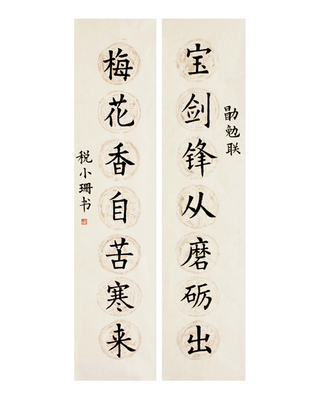 宝剑锋从磨砺出
勖勉联
梅花香自苦寒来
税小珊书